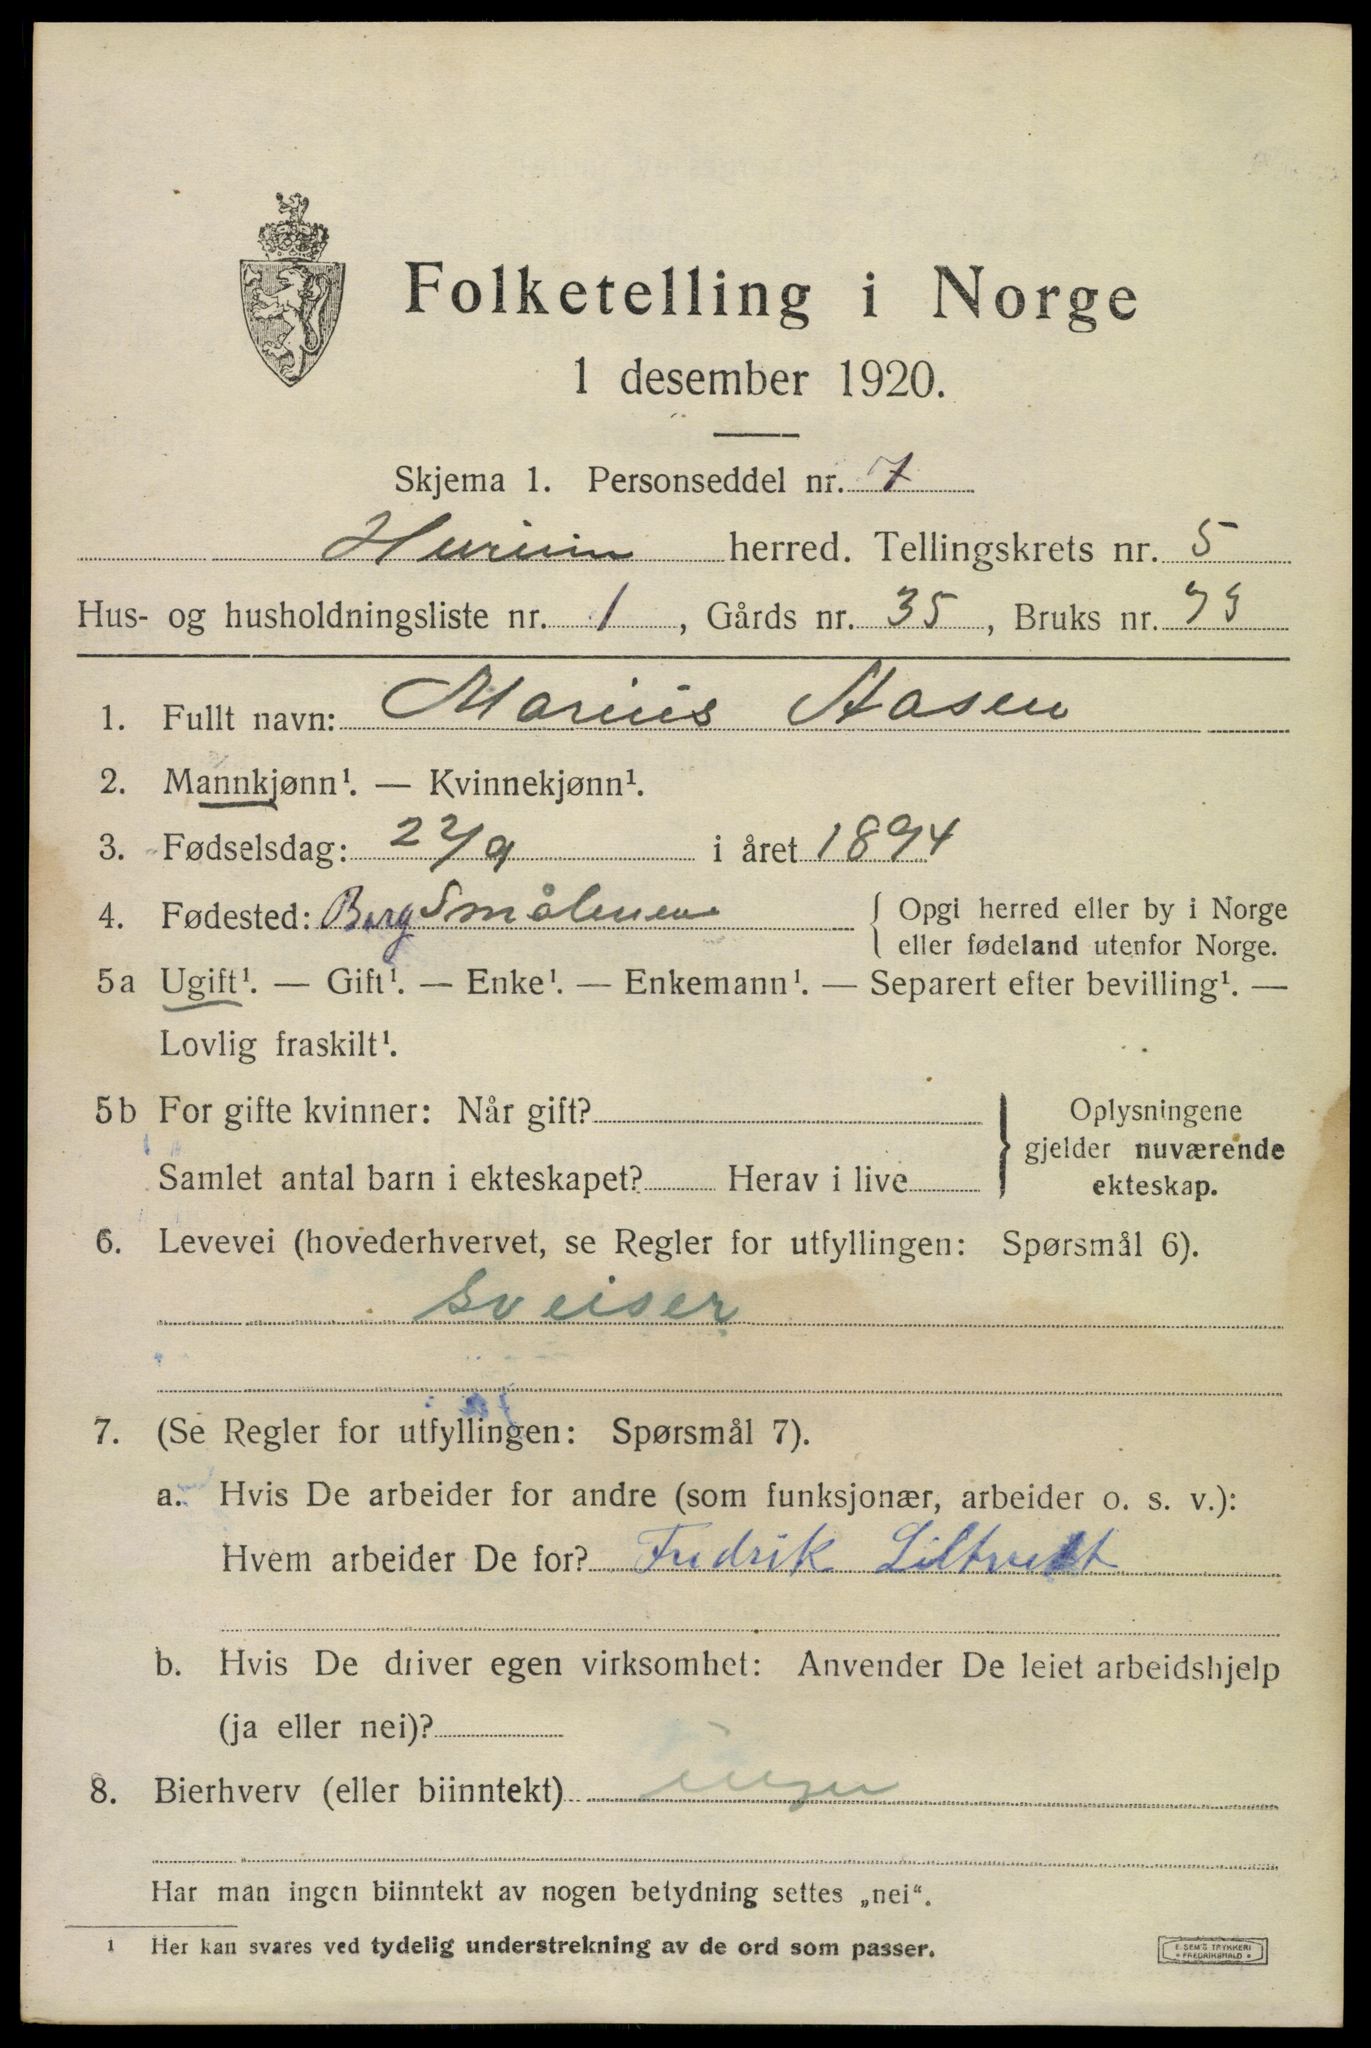 Folketelling i Norge
1 desember 1920.
Skjema 1. Personseddel nr. 7
Hurum herred. Tellingskrets nr. 5
Hus- og husholdningsliste nr. 1, Gårds nr. 35, Bruks nr.
1. Fullt navn: Marius Aasen
2. Mannkjønn¹. — Kvinnekjønn¹.
3. Fødselsdag: 22/9 i året 1894
4. Fødested: Berg Smålenene { Opgi herred eller by i Norge
eller fødeland utenfor Norge.
5a Ugift¹. — Gift¹. — Enke¹. — Enkemann¹. — Separert efter bevilling¹. —
Lovlig fraskilt¹.
5b For gifte kvinner: Når gift?
Samlet antal barn i ekteskapet? Herav i live
} Oplysningene
gjelder nuværende
ekteskap.
6. Levevei (hovederhvervet, se Regler for utfyllingen: Spørsmål 6).
Sveiser
7. (Se Regler for utfyllingen: Spørsmål 7).
a. Hvis De arbeider for andre (som funksjonær, arbeider o. s. v.):
Hvem arbeider De for? Fredrik
b. Hvis De driver egen virksomhet: Anvender De leiet arbeidshjelp
(ja eller nei)?
8. Bierhverv (eller biinntekt) ingen
Har man ingen biinntekt av nogen betydning settes „nei“.
1 Her kan svares ved tydelig understrekning av de ord som passer.
E. SEM'S TRYKKERI
• FREDRIKSHALD •